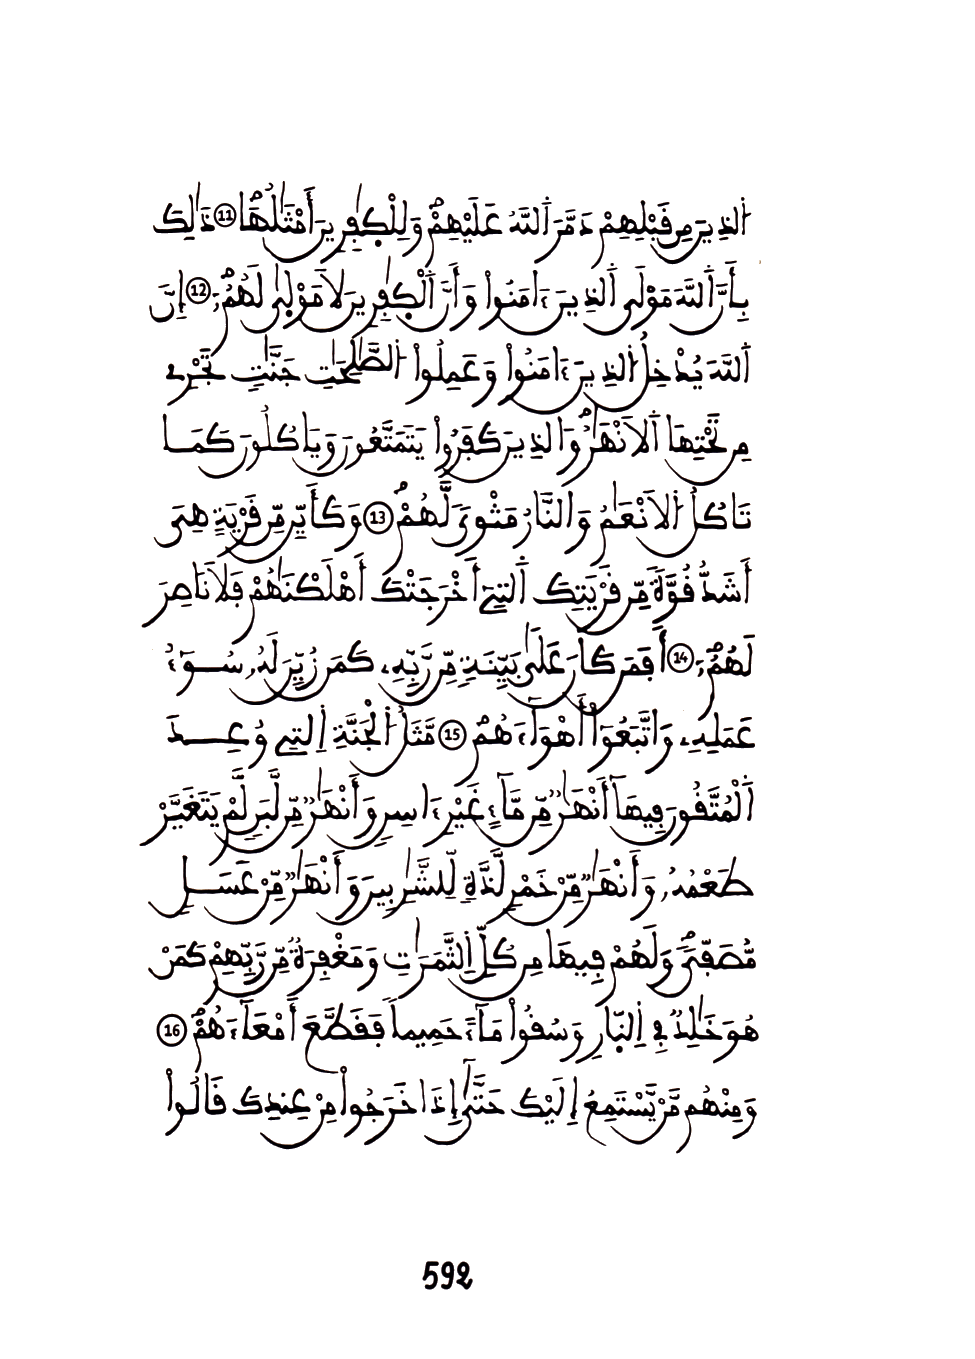 اَ۬لذِينَ مِن قَبْلِهِمْ دَمَّرَ اَ۬للَّهُ عَلَيْهِمْۖ وَلِلْكٰ۪فِرِينَ أَمْثَٰلُهَاۖ 11 ذَٰلِكَ
بِأَنَّ اَ۬للَّهَ مَوْلَي اَ۬لذِينَ ءَامَنُواْ وَأَنَّ اَ۬لْكٰ۪فِرِينَ لَا مَوْل۪يٰ لَهُمُۥٓۖ 12 إِنَّ
اَ۬للَّهَ يُدْخِلُ اُ۬لذِينَ ءَامَنُواْ وَعَمِلُواْ اُ۬لصَّٰلِحَٰتِ جَنَّٰتٖ تَجْرِے
مِن تَحْتِهَا اَ۬لَانْهَٰرُۖ وَالذِينَ كَفَرُواْ يَتَمَتَّعُونَ وَيَاكُلُونَ كَمَا
تَاكُلُ اُ۬لَانْعَٰمُ وَالنَّارُ مَثْويٗ لَّهُمْۖ 13 وَكَأَيِّن مِّن قَرْيَةٍ هِيَ
أَشَدُّ قُوَّةٗ مِّن قَرْيَتِكَ اَ۬لتِےٓ أَخْرَجَتْكَ أَهْلَكْنَٰهُمْ فَلَا نَاصِرَ
لَهُمُۥٓۖ 14 أَفَمَن كَانَ عَلَىٰ بَيِّنَةٖ مِّن رَّبِّهِۦ كَمَن زُيِّنَ لَهُۥ سُوٓءُ
عَمَلِهِۦ وَاتَّبَعُوٓاْ أَهْوَآءَهُمْۖ 15 مَّثَلُ اُ۬لْجَنَّةِ اِ۬لتِے وُعِدَ
اَ۬لْمُتَّقُونَ فِيهَآ أَنْهَٰرٞ مِّن مَّآءٍ غَيْرِ ءَاسِنٖ وَأَنْهَٰرٞ مِّن لَّبَنٖ لَّمْ يَتَغَيَّرْ
طَعْمُهُۥ وَأَنْهَٰرٞ مِّنْ خَمْرٖ لَّذَّةٖ لِّلشَّٰرِبِينَ وَأَنْهَٰرٞ مِّنْ عَسَلٖ
مُّصَفّيٗۖ وَلَهُمْ فِيهَا مِن كُلِّ اِ۬لثَّمَرَٰتِ وَمَغْفِرَةٞ مِّن رَّبِّهِمْ كَمَنْ
هُوَ خَٰلِدٞ فِے اِ۬لنّ۪ارِ وَسُقُواْ مَآءً حَمِيماٗ فَقَطَّعَ أَمْعَآءَهُمْۖ 16
وَمِنْهُم مَّنْ يَّسْتَمِعُ إِلَيْكَ حَتَّىٰٓ إِذَا خَرَجُواْ مِنْ عِندِكَ قَالُواْ
592